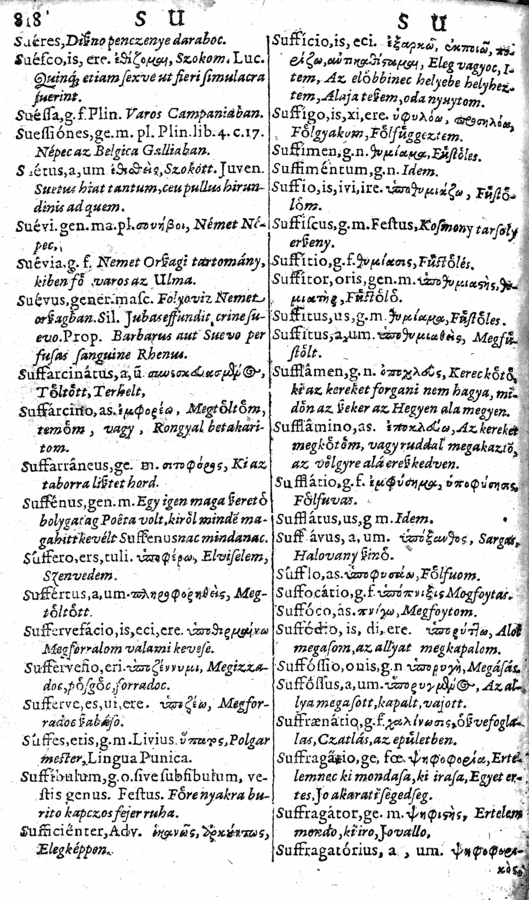 818 S U
S U
Suéres, Diſno penczenye daraboc.
Suéſco, is, ere. ἐθίζομαι, Szokom. Luc.
Quinq; etiam ſexve ut fieri ſimulacra
fuerint.
Suéſſa, g.f. Plin. Varos Campaniaban.
Sueſſiónes, ge.m. pl. Plin. lib. 4. c. 17.
Népec az Belgica Galliaban.
Suétus, a, um Szokott. Juven.
Suetus hiat tantum, ceu pullus hirun-
dinis ad quem.
Suévi. gen. ma. pl. σουήβοι, Német Né-
pec,
Suévia. g. f. Nemet Orßagi tartomány,
kiben fő varos az Ulma.
Suévus, gener. maſc. Folyoviz Nemet
orßagban. Sil. Jubas effundit crine ſu-
evo. Prop. Barbarus aut Suevo per
fuſas ſanguine Rhenus.
Suffarcinátus, a, ũ
Tőltőtt, Terhelt,
Suffárcino, as. ἐμφορέω, Megtőltőm,
temőm, vagy, Rongyal betakari-
tom.
Suffarráneus, ge. m. σιτοφόρος, Ki az
taborra liſtet hord.
Sufſénus, gen. m. Egy igen maga ßerető
bolygatag Poëta volt, kiről mindē ma-
gahitt kevélt Suffenusnac mindanac.
Súffero, ers, tuli. ὑποφέρω, Elviſelem,
Szenvedem.
Suffértus, a, um πληροφορηθεὶς, Meg-
tőltőtt.
Suffervefácio, is, eci, ere.
Megforralom valami kevese.
Suffervefio, eri. ὑποζέννυμι, Megizza-
doc, poſgőc, forradoc.
Sufferve, es, ui, ere. ὑποζέω, Megfor-
radoc
Súffes, etis, g. m. Livius. ὕπατος, Polgar
meſter, Lingua Punica.
Suffíbulum, g. o. ſive ſubfibulum, ve-
ſtis genus. Feſtus. Főre nyakra bu-
rito kapczos fejer ruha.
Sufficiénter, Adv. ἱκανῶς,
Elegképpen.
Suffício, is, eci. ἐξαρκῶ,
Eleg vagyoc, I-
tem, Az előbbinec helyebe helyhez-
tem, Alaja teßem, oda nyuytom.
Suffígo, is, xi, ere.
Főlgyakum, Főlfüggeztem.
Suffímen, g. n. θυμίαμα, Füſtőles.
Suffiméntum, g. n. Idem.
Súffio, is, ivi, ire. ὑποθυμιάζω, Füſtő-
lőm.
Suffíſcus, g. m. Feſtus, Koſmony tarſoly
erßeny.
Suffítio, g. f. θυμίασις, Füſtőlés.
Suffítor, oris, gen. m.
Füſtőlő.
Suffítus, us, g. m. θυμίαμα, Füſtőles.
Suffítus, a, um. ὑποθυμιαθεὶς, Megfü-
ſtőlt.
Sufflámen, g. n. Kerec kőtő,
ki az kereket forgani nem hagya, mi-
dőn az ßeker az Hegyen ala megyen.
Sufflámino, as. Az kereket
megkőtőm, vagy ruddal megakaztő,
az vőlgyre alá ereßkedven.
Sufflátio, g. f. ἐμφύσημα, ὑποφύσησις,
Főlfuvas.
Sufflátus, us, g m. Idem.
Sufflávus, a, um. ὑπόξανθος, Sargas,
Halovany ßinő.
Súfflo, as. ὑποφυσάω, Főlfuom.
Suffocátio, g. f. Megfoytas.
Súffóco, as. πνίγω, Megfoytom.
Suffódio, is, di, ere. ὑπορύττω, Alol
megaſom, az allyat megkapalom.
Suffóſſio, onis, g. n ὑπορυγὴ, Megáſás.
Suffóſſus, a, um. Az al-
lya megaſott, kapalt, vajott.
Suffrænátio, g. f. χαλίνωσις, őßvefogla-
las, Czatlás, az epületben.
Suffragátio, ge, fœ. ψηφοφορία, Erte-
lemnec ki mondaſa, ki iraſa, Egyet er-
tes, Jo akarati ſegedſeg.
Suffragátor, ge. m. Ertelem
mondo, ki iro, Jovallo,
Suffragatórius, a, um. ψηφοφορι-
κὸς,